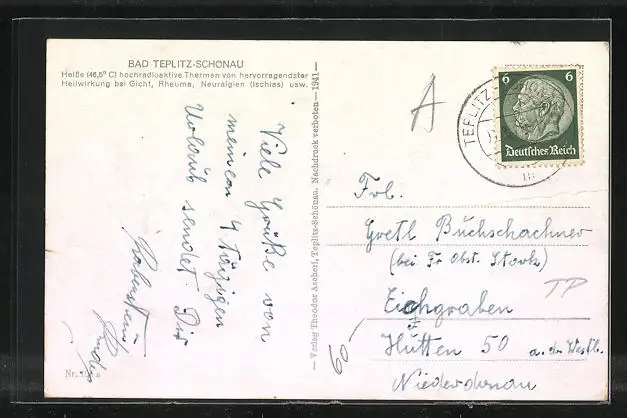 BAD TEPLITZ-SCHÖNAU
Heiße (46,5° C) hochradioaktive Thermen von hervorragendster
Heilwirkung bei Gicht, Rheuma, Neuralgien (Ischias) usw.
Viele Grüße von
meinem 4 tägigen
Urlaub sendet Dir
Nr.
— Verlag Theodor Ascherl, Teplitz-Schönau. Nachdruck verboten — 1941 —
A
TEPLITZ
6 6
Deutsches Reich
Frl.
Gretl Buchschachner
(bei Fr. Obst. Stark)
TP
Eichgraben
Hütten 50 a. d. Westb.
Niederdonau